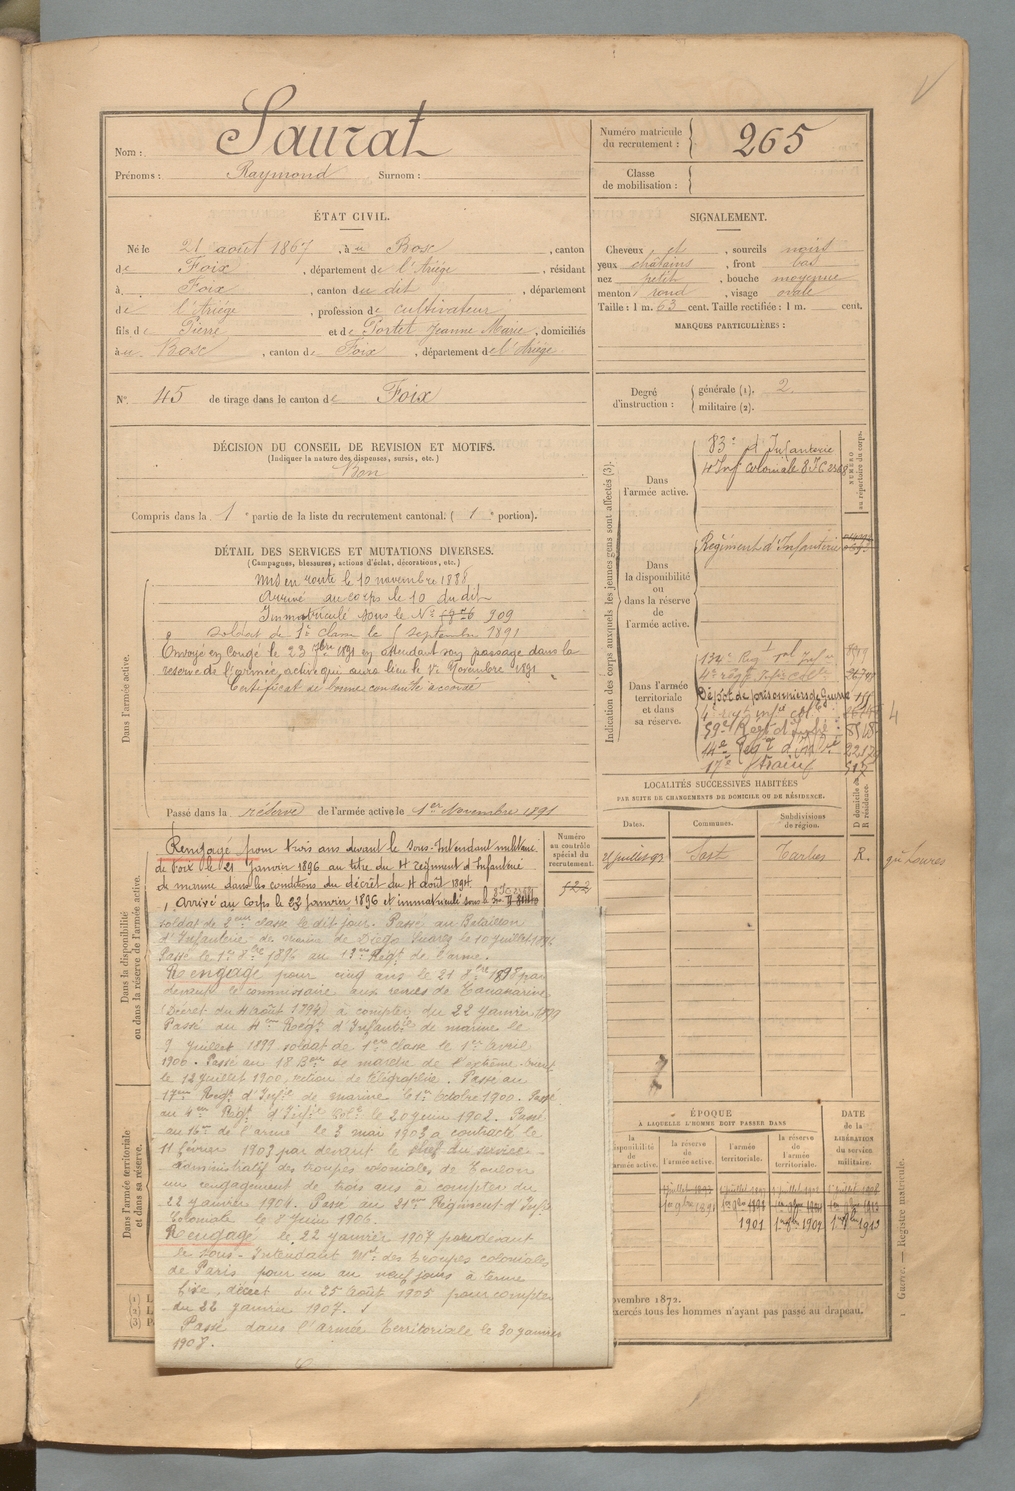 Nom : Saurat
Prénoms : Raymond Surnom :
Numéro matricule
du recrutement : 265
Classe
de mobilisation :
ÉTAT CIVIL.
Né le 21 août 1867, à u Bosc, canton
de Foix, département de l'Ariège, résidant
à Foix, canton du dit, département
de l'Ariège, profession de cultivateur
fils de Pierre et de Portet Jeanne Marie, domiciliés
à u Bosc, canton de Foix, département de l'Ariège.
N° 45 de tirage dans le canton de Foix
SIGNALEMENT.
Cheveux et, sourcils noirs
yeux châtains, front bas
nez petit, bouche moyenne
menton rond, visage ovale
Taille : 1 m. 63 cent. Taille rectifiée : 1 m. cent.
MARQUES PARTICULIÈRES :
Degré
d'instruction :
générale (1). 2
militaire (2).
DÉCISION DU CONSEIL DE REVISION ET MOTIFS.
(Indiquer la nature des dispenses, sursis, etc.)
Bon
Compris dans la 1e partie de la liste du recrutement cantonal. ( 1e portion).
DÉTAIL DES SERVICES ET MUTATIONS DIVERSES.
(Campagnes, blessures, actions d'éclat, décorations, etc.)
Dans l'armée active.
Mis en route le 10 novembre 1888
Arrivé au corps le 10 du dit
Immatriculé sous le N° 909
Soldat de 1e classe le septembre 1891
Envoyé en congé le 23 7bre 1891 en attendant son passage dans la
réserve de l'armée active qui aura lieu le 1er Novembre 1891
Certificat de bonne conduite accordé
Passé dans la réserve de l'armée active le 1er Novembre 1891
Dans la disponibilité
ou dans la réserve de l'armée active.
Numéro
au contrôle
spécial du
recrutement.
522
Rengagé pour trois ans devant le Sous-Intendant militaire
de Foix le 21 Janvier 1896 au titre du 4e régiment d'Infanterie
de marine dans les conditions du décret du 4 août 1894
Arrivé au Corps le 22 janvier 1896 et immatriculé sous le
soldat de 2eme classe le dit jour. Passé au Bataillon
d'Infanterie de marine de Diego Suarez le 10 juillet 1896
Passé le 1er 8bre 1896 au 13eme Régt de l'arme.
Rengagé pour cinq ans le 21 8bre 1898 par
devant le commissaire aux revues de Tananarive
(Décret du 4 août 1894) à compter du 22 janvier 1899
Passé au 4eme Régt d'Infantie de marine le
9 juillet 1899 soldat de 1ere classe le 1er avril
1900. Passé au 18 Bon de marche de l'extrême-Orient
le 12 juillet 1900, section de télégraphie. Passé au
17eme Régt d'Infie de marine le 1er Octobre 1900. Passé
au 4eme Régt d'Infie Colle le 20 juin 1902. Passé
au 16e de l'arme le 3 mai 1903 a contracté le
11 février 1903 par devant le chef du service
administratif des troupes coloniales de Toulon
un rengagement de trois ans à compter du
22 janvier 1904. Passé au 21eme Régiment d'Infie
Coloniale le 8 Juin 1906.
Rengagé le 22 janvier 1907 par devant
le Sous-Intendant Mre des troupes coloniales
de Paris pour un an neuf jours à terme
fixe, décret du 25 août 1905 pour compter
du 22 janvier 1907.
Passé dans l'armée territoriale le 30 janvier
1908.
Dans l'armée territoriale
et dans sa réserve.
Indication des corps auxquels les jeunes gens sont affectés (3).
NUMÉRO
au répertoire du corps.
Dans
l'armée active.
83e d'Infanterie
4e Inf Coloniale
Dans
la disponibilité
ou
dans la réserve
de
l'armée active.
Régiment d'Infanterie
Dans l'armée
territoriale
et dans
sa réserve.
134e Regt
4e régt Infie Colle
Dépôt de prisonniers de guerre
59e Regt d'Infie
17e Train
LOCALITÉS SUCCESSIVES HABITÉES
PAR SUITE DE CHANGEMENTS DE DOMICILE OU DE RÉSIDENCE.
Dates. Communes. Subdivisions
de région. D domicile ou
R résidence.
Juillet 93 Sost Tarbes R. gie Loures
ÉPOQUE
À LAQUELLE L'HOMME DOIT PASSER DANS
la
disponibilité
de l'armée active.
la réserve
de
l'armée active.
l'armée
territoriale.
la réserve
de
l'armée
territoriale.
DATE
de la
LIBÉRATION
du service
militaire.
1901
novembre 1872.
exercés tous les hommes n'ayant pas passé au drapeau.
Guerre. — Registre matricule.